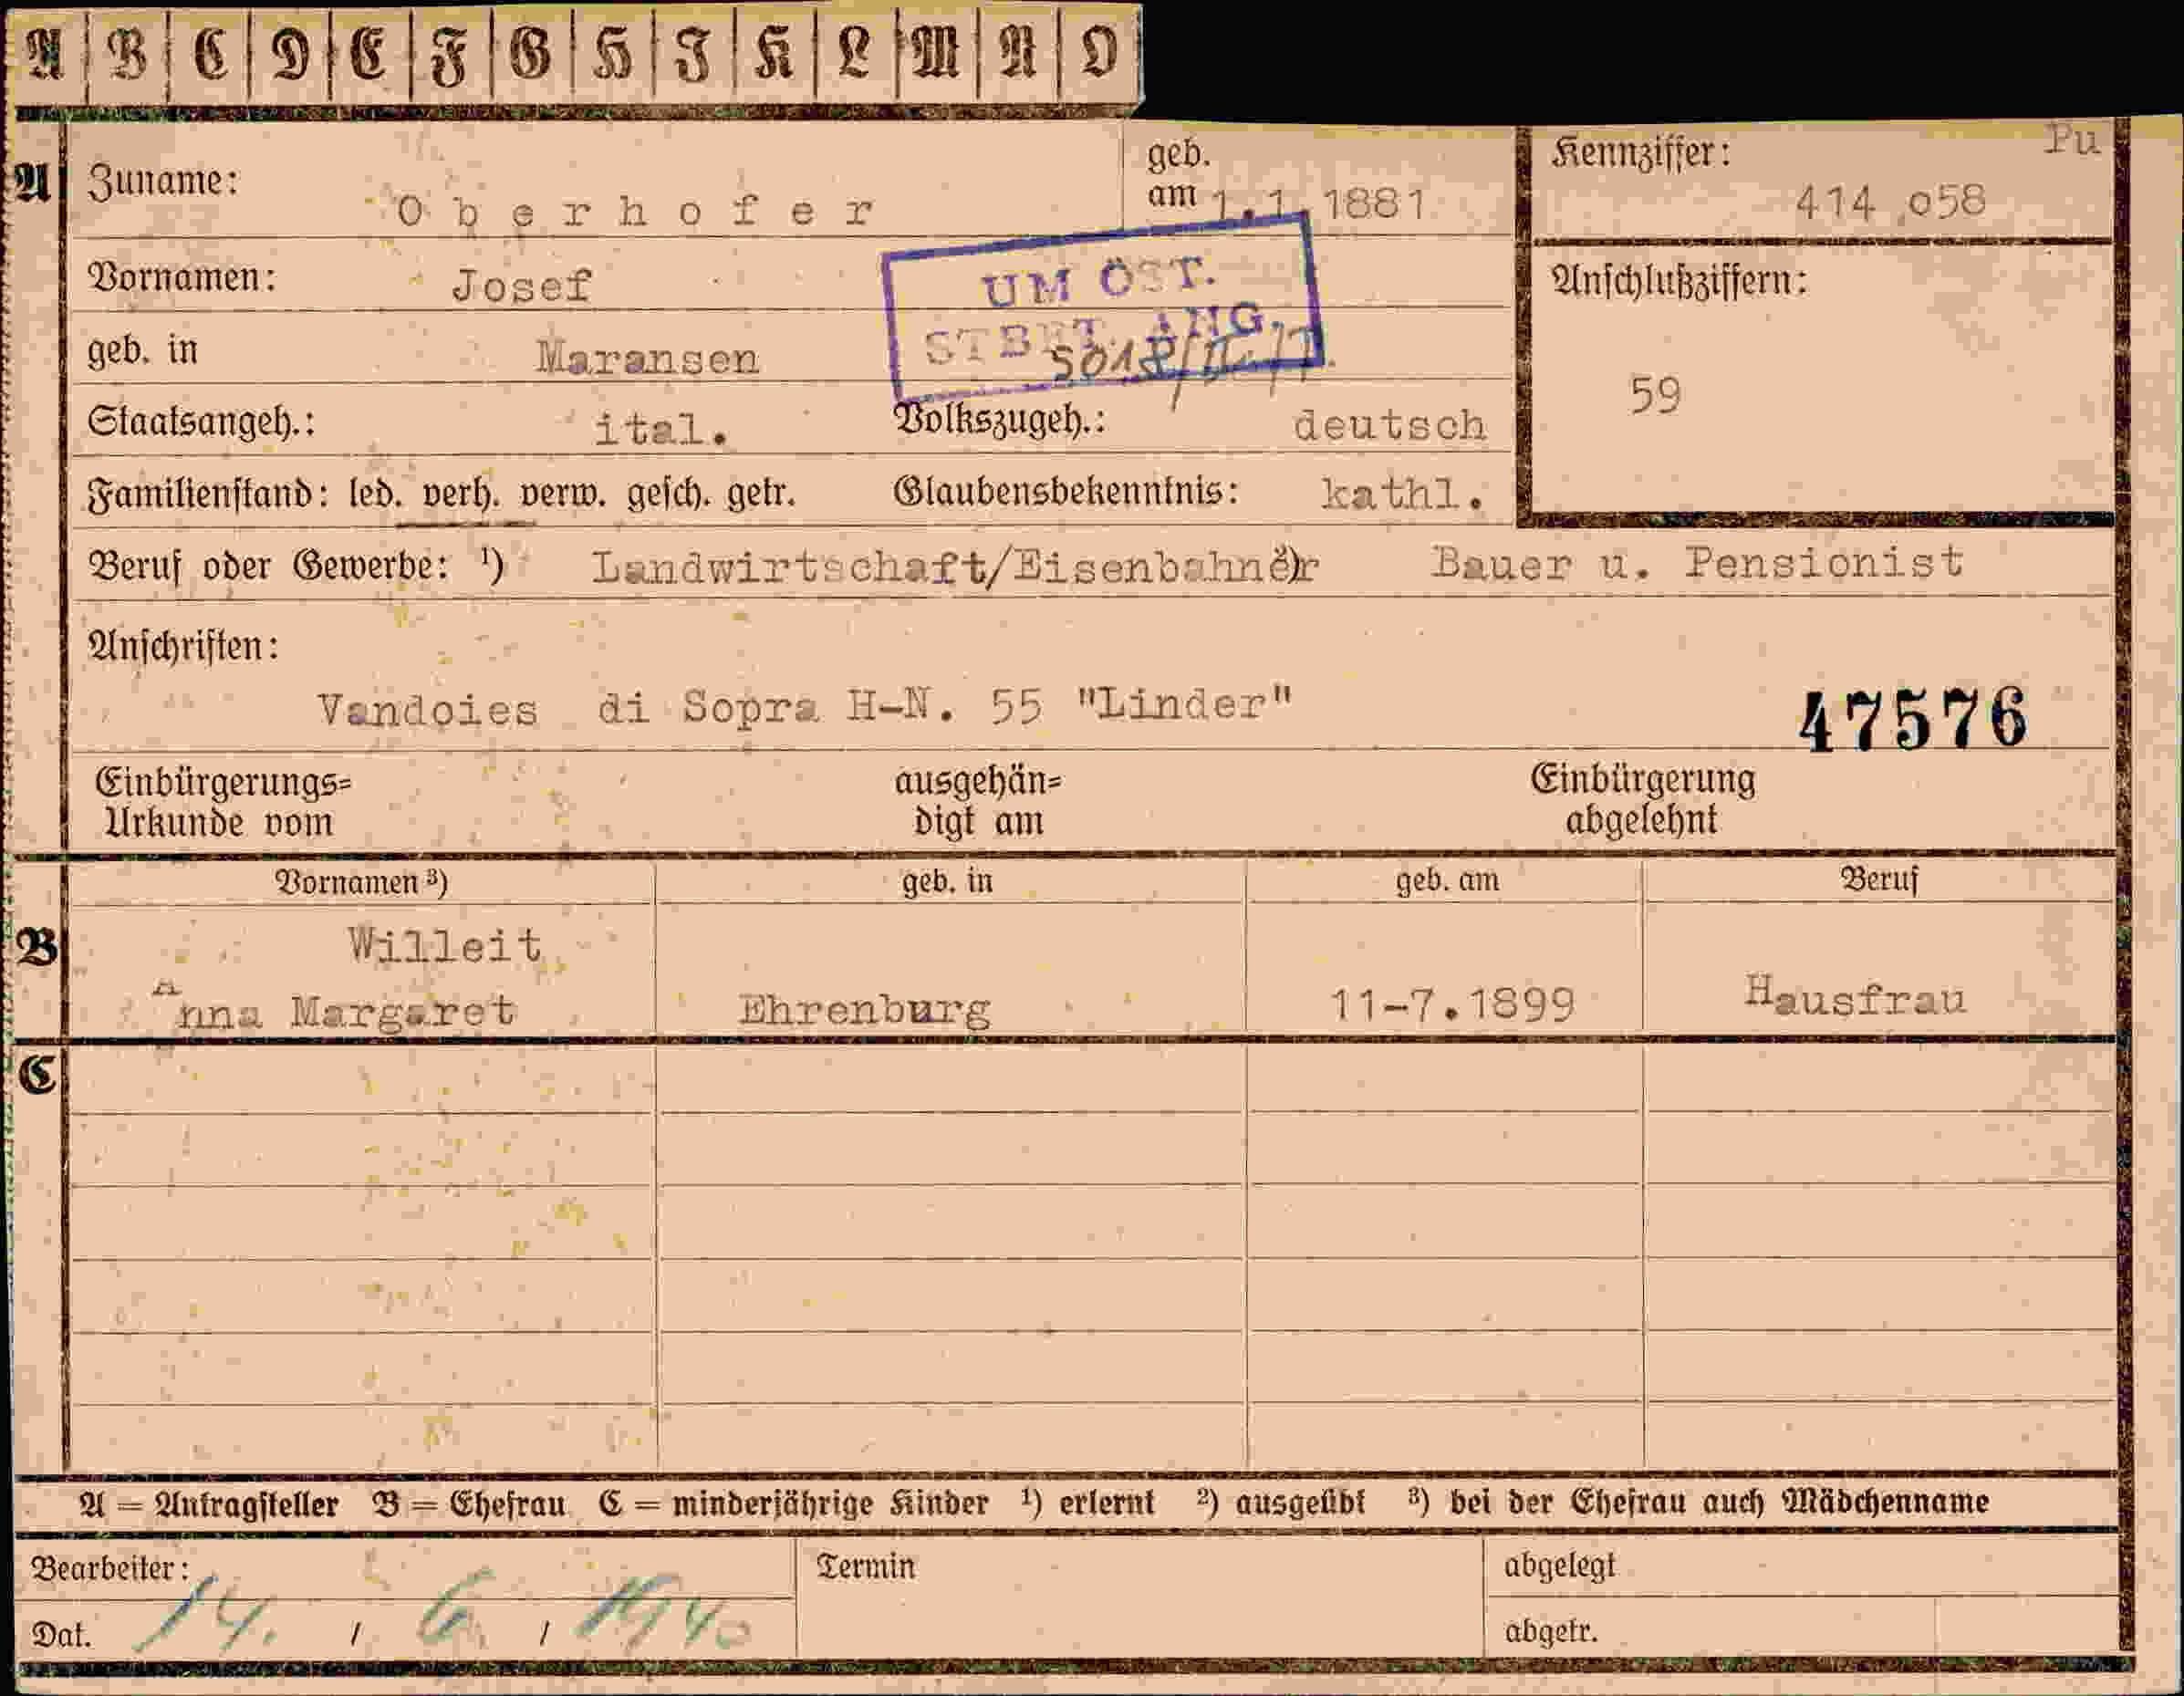 A B C D E F G H J K L M N O
A Zuname: Oberhofer geb. am 1.1.1881 Kennziffer: 414 o58 Pu
Vornamen: Josef
UM ÖST.
geb. in Maransen
Anschlußziffern: 59
Staatsangeh.: ital. Volkszugeh.: deutsch
Familienstand: led. verh. verw. gesch. getr. Glaubensbekenntnis: kathl.
Beruf oder Gewerbe: ¹) Landwirtschaft/Eisenbahner Bauer u. Pensionist
Anschriften:
Vandoies di Sopra H-N. 55 "Linder" 47576
Einbürgerungs= Urkunde vom ausgehän= digt am Einbürgerung abgelehnt
Vornamen ³) geb. in geb. am Beruf
B Willeit
Anna Margaret Ehrenburg 11-7.1899 Hausfrau
C
A = Antragsteller B = Ehefrau C = minderjährige Kinder ¹) erlernt ²) ausgeübt ³) bei der Ehefrau auch Mädchenname
Bearbeiter: Termin abgelegt
Dat. 14. / 6. / 1940 abgetr.